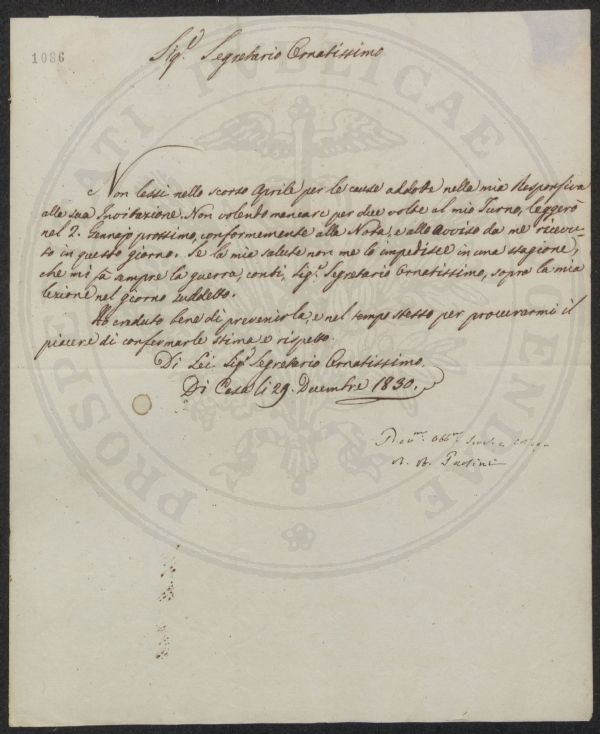 1086
Sig.r Segretario Ornatissimo
Non lessi nello scorso Aprile per le cause addotte nella mia Responsiva
alla sua Invitazione. Non volendo mancare per due volte al mio Turno, leggerò
nel 2. Gennajo prossimo, conformemente alla Nota, e allo avviso da me ricevu-
to in questo giorno. Se la mia salute non me lo impedisce in una stagione,
che mi fà sempre la guerra, conti, Sig.r Segretario Ornatissimo, sopra la mia
lezione nel giorno suddetto.
Ho creduto bene di prevenirla, e nel tempo stesso per procurarmi il
piacere di confermarle stima e rispetto.
Di Lei Sig.r Segretario Ornatissimo.
Di Casa li 29. Decembre 1830.
Dev.mo Obb.mo
Paolini
PROSPERITATI PVBLICAE AVGENDAE